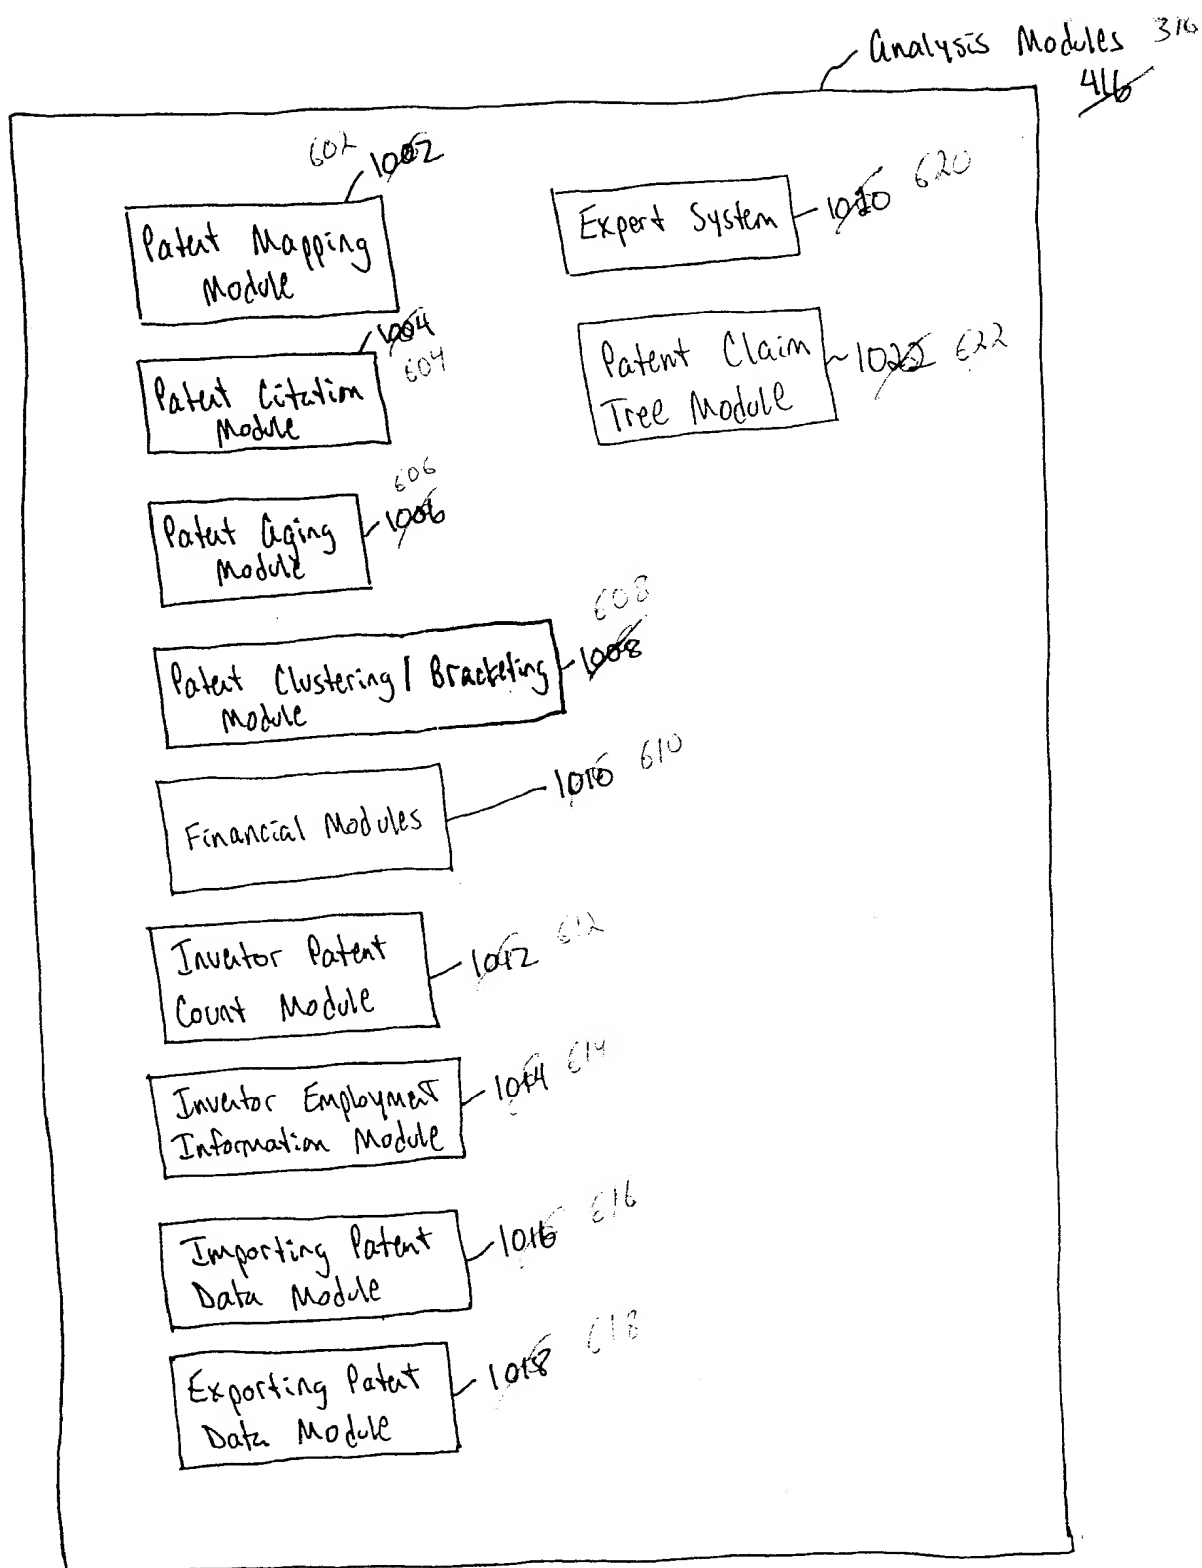 Analysis Modules 316
416
602
1002
Patent Mapping
Module
1004
604
Patent Citation
Module
606
1006
Patent Aging
Module
608
1008
Patent Clustering / Bracketing
Module
Financial Modules
1010 610
Inventor Patent
Count Module
1012 612
Inventor Employment
Information Module
1014 614
Importing Patent
Data Module
1016 616
Exporting Patent
Data Module
1018 618
Expert System
1020 620
Patent Claim
Tree Module
1022 622